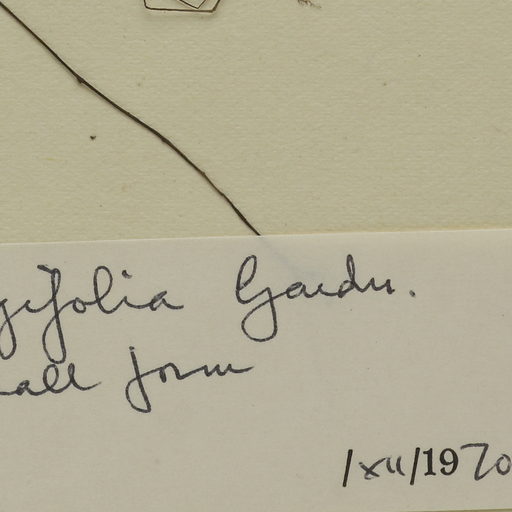 gifolia Gardn.
all form
/xii/1970